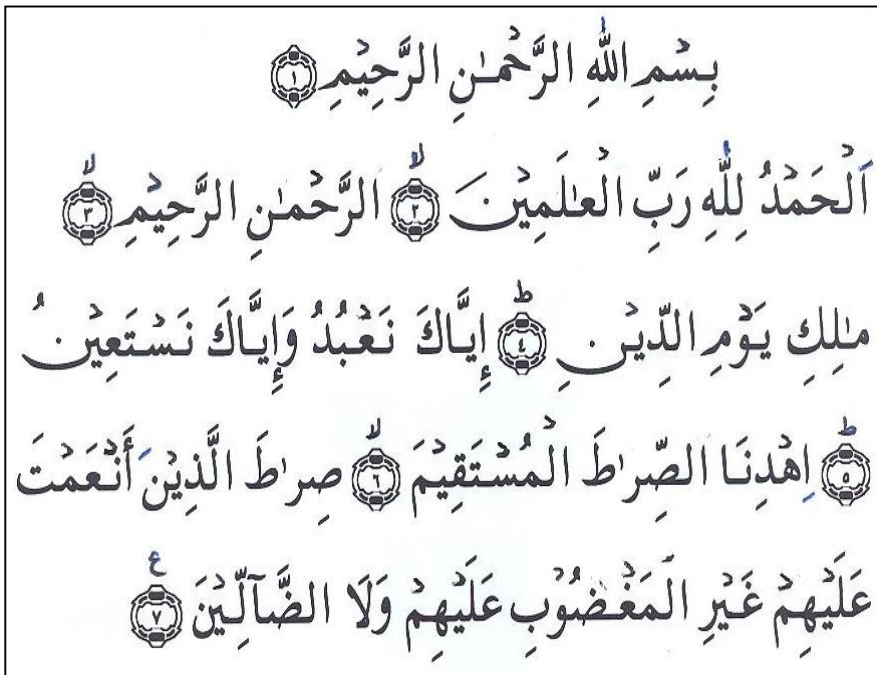 بِسْمِ اللّٰهِ الرَّحْمٰنِ الرَّحِيْمِ ١
اَلْحَمْدُ لِلّٰهِ رَبِّ الْعٰلَمِيْنَ ۙ ٢ الرَّحْمٰنِ الرَّحِيْمِ ۙ ٣
مٰلِكِ يَوْمِ الدِّيْنِ ؕ ٤ إِيَّاكَ نَعْبُدُ وَإِيَّاكَ نَسْتَعِيْنُ
ؕ ٥ اِهْدِنَا الصِّرٰطَ الْمُسْتَقِيْمَ ۙ ٦ صِرٰطَ الَّذِيْنَ أَنْعَمْتَ
عَلَيْهِمْ غَيْرِ الْمَغْضُوْبِ عَلَيْهِمْ وَلَا الضَّآلِّيْنَ ع ٧